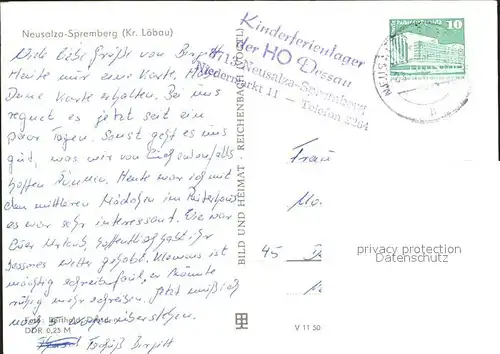 Neusalza-Spremberg (Kr. Löbau)
Viele liebe Grüße von Birgitt
Heute nur eine Karte. Habe
Deine Karte erhalten. Bei uns
regnet es jetzt seit ein
paar Tagen. Sonst geht es uns
gut, was wir von Euch ebenfalls
hoffen können. Heute war ich mit
den mittleren Mädchen im
es war sehr interessant. Wie war
Euer Urlaub, hoffentlich habt Ihr
besseres Wetter gehabt. Klemens ist
mächtig schreibfaul, er könnte
ruhig mehr schreiben. Jetzt muß ich
noch
DDR 0,25 M
Tschüß Birgitt
BILD UND HEIMAT REICHENBACH (VOGTL)
V 11 50
Kinderferienlager
der HO Dessau
Neusalza-Spremberg
Niedermarkt 11 — Telefon 2264
10
Frau
45
privacy protection
Datenschutz